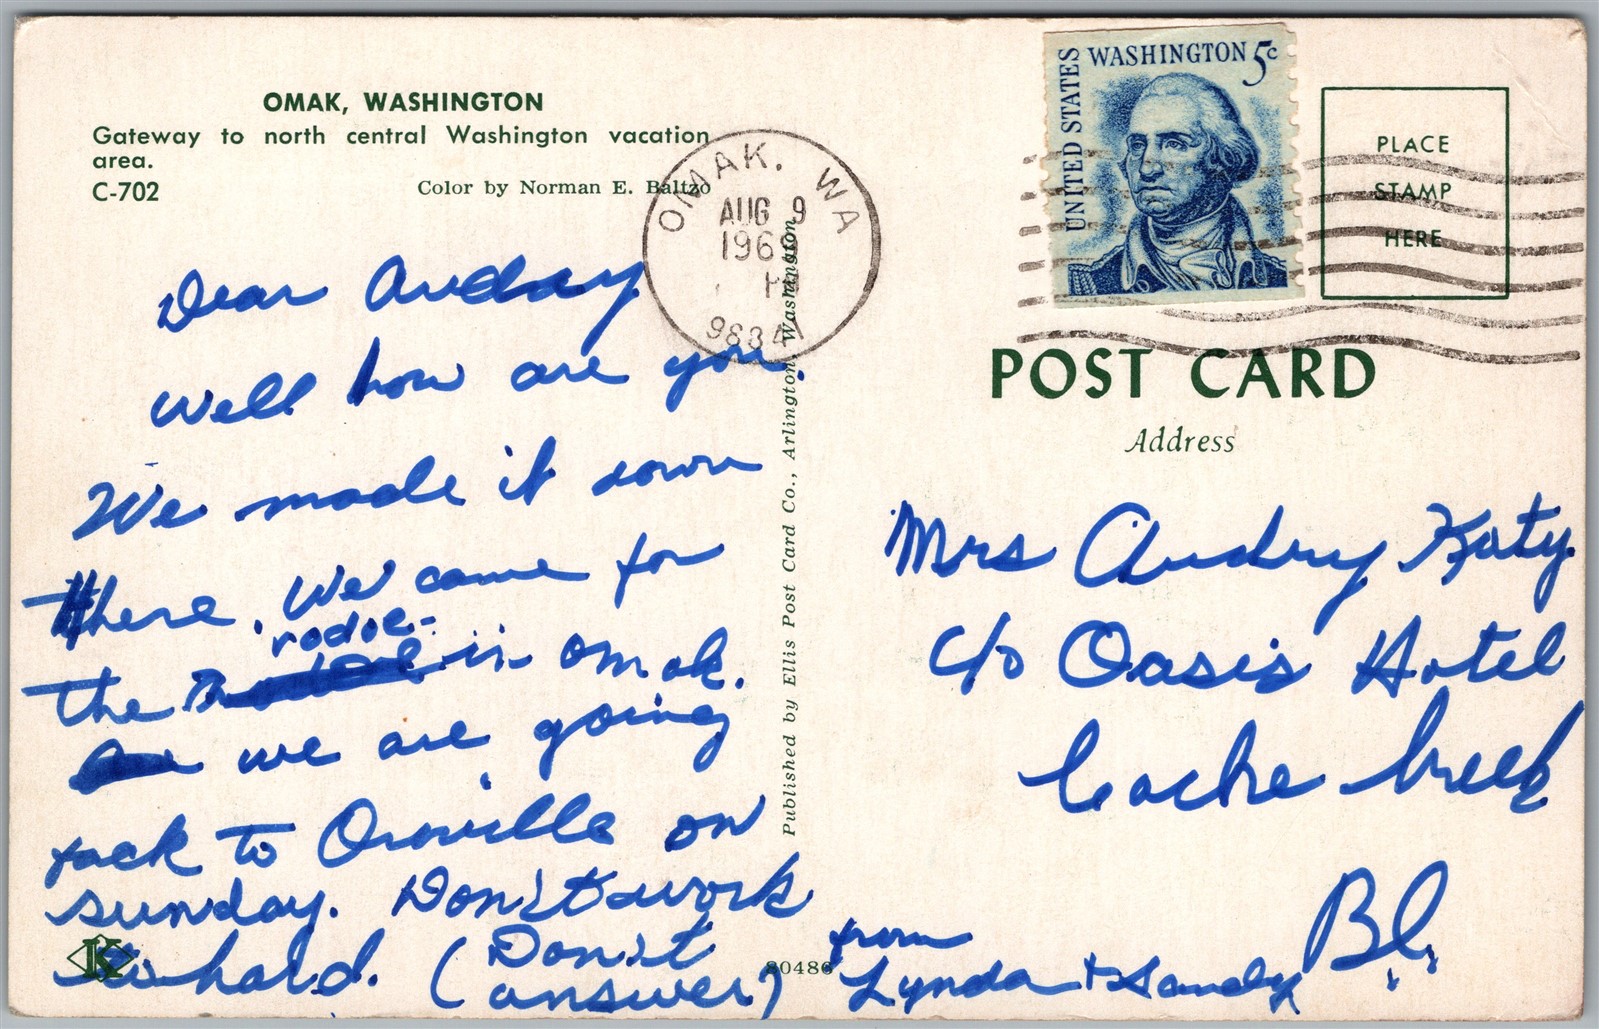 OMAK, WASHINGTON
Gateway to north central Washington vacation
area.
C-702
Color by Norman E. Baltzo
Dear Audray
Well how are you.
We made it down
there. We came for
the rodoe- in Omak.
we are going
back to Oroville on
sunday. Don't work
to hard. (Don't
answer)
from
Lynda + Sandy
K
80486
Published by Ellis Post Card Co., Arlington, Washington
OMAK, WA
AUG 9
1969
98841
UNITED STATES
WASHINGTON 5c
PLACE
STAMP
HERE
POST CARD
Address
Mrs Audry Katy
c/o Oasis Hotel
Cache Creek
B.C.